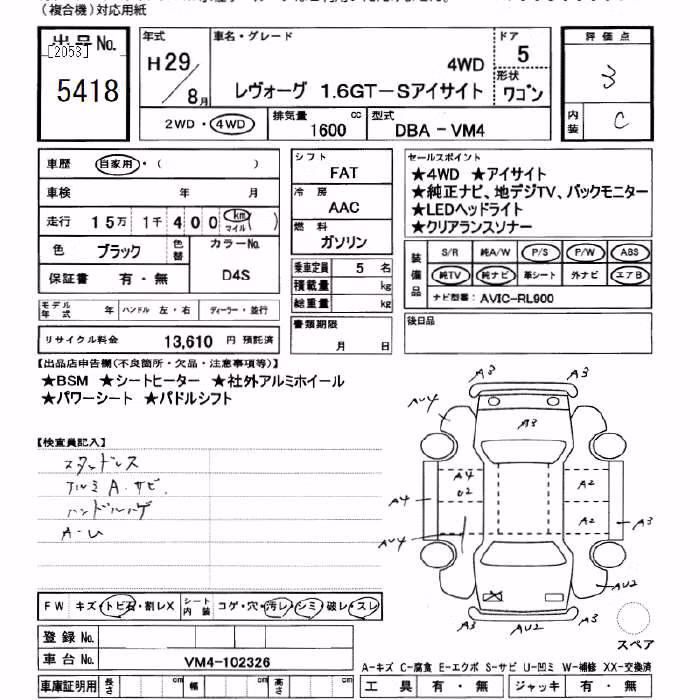 (複合機)対応用紙
出品No.
[2053]
5418
年式
H29/8月
車名・グレード
4WD
レヴォーグ 1.6GT-Sアイサイト
ドア
5
形状
ワゴン
評価点
3
内装
C
2WD・4WD
排気量
1600 cc
型式
DBA-VM4
車歴 自家用・( )
車検 年 月
走行 15万 1千 400 km マイル ( )
色 ブラック
色替
カラーNo.
D4S
保証書 有・無
モデル年式 年 ハンドル 左・右 ディーラー・並行
リサイクル料金 13,610 円 預託済
シフト
FAT
冷房
AAC
燃料
ガソリン
乗車定員 5 名
積載量 kg
総重量 kg
書類期限
月 日
セールスポイント
★4WD ★アイサイト
★純正ナビ、地デジTV、バックモニター
★LEDヘッドライト
★クリアランスソナー
装備品
S/R 純A/W P/S P/W ABS
純TV 純ナビ 革シート 外ナビ エアB
ナビ型番: AVIC-RL900
後日品
【出品店申告欄(不良箇所・欠品・注意事項等)】
★BSM ★シートヒーター ★社外アルミホイール
★パワーシート ★パドルシフト
【検査員記入】
スタッドレス
アルミ A.サビ.
ハンドルハゲ
A-U
A3 A3
AU4
A3
A4
U2
A2
A4
A2
A3
AU4
AU2
A3 AU2 A3
スペア
FW キズ・トビ石・割レX
シート内装 コゲ・穴・汚レ・シミ・破レ・スレ
登録No.
車台No. VM4-102326
A-キズ C-腐食 E-エクボ S-サビ U-凹ミ W-補修 XX-交換済
車庫証明用 長さ cm 幅 cm 高さ cm
工具 有・無 ジャッキ 有・無